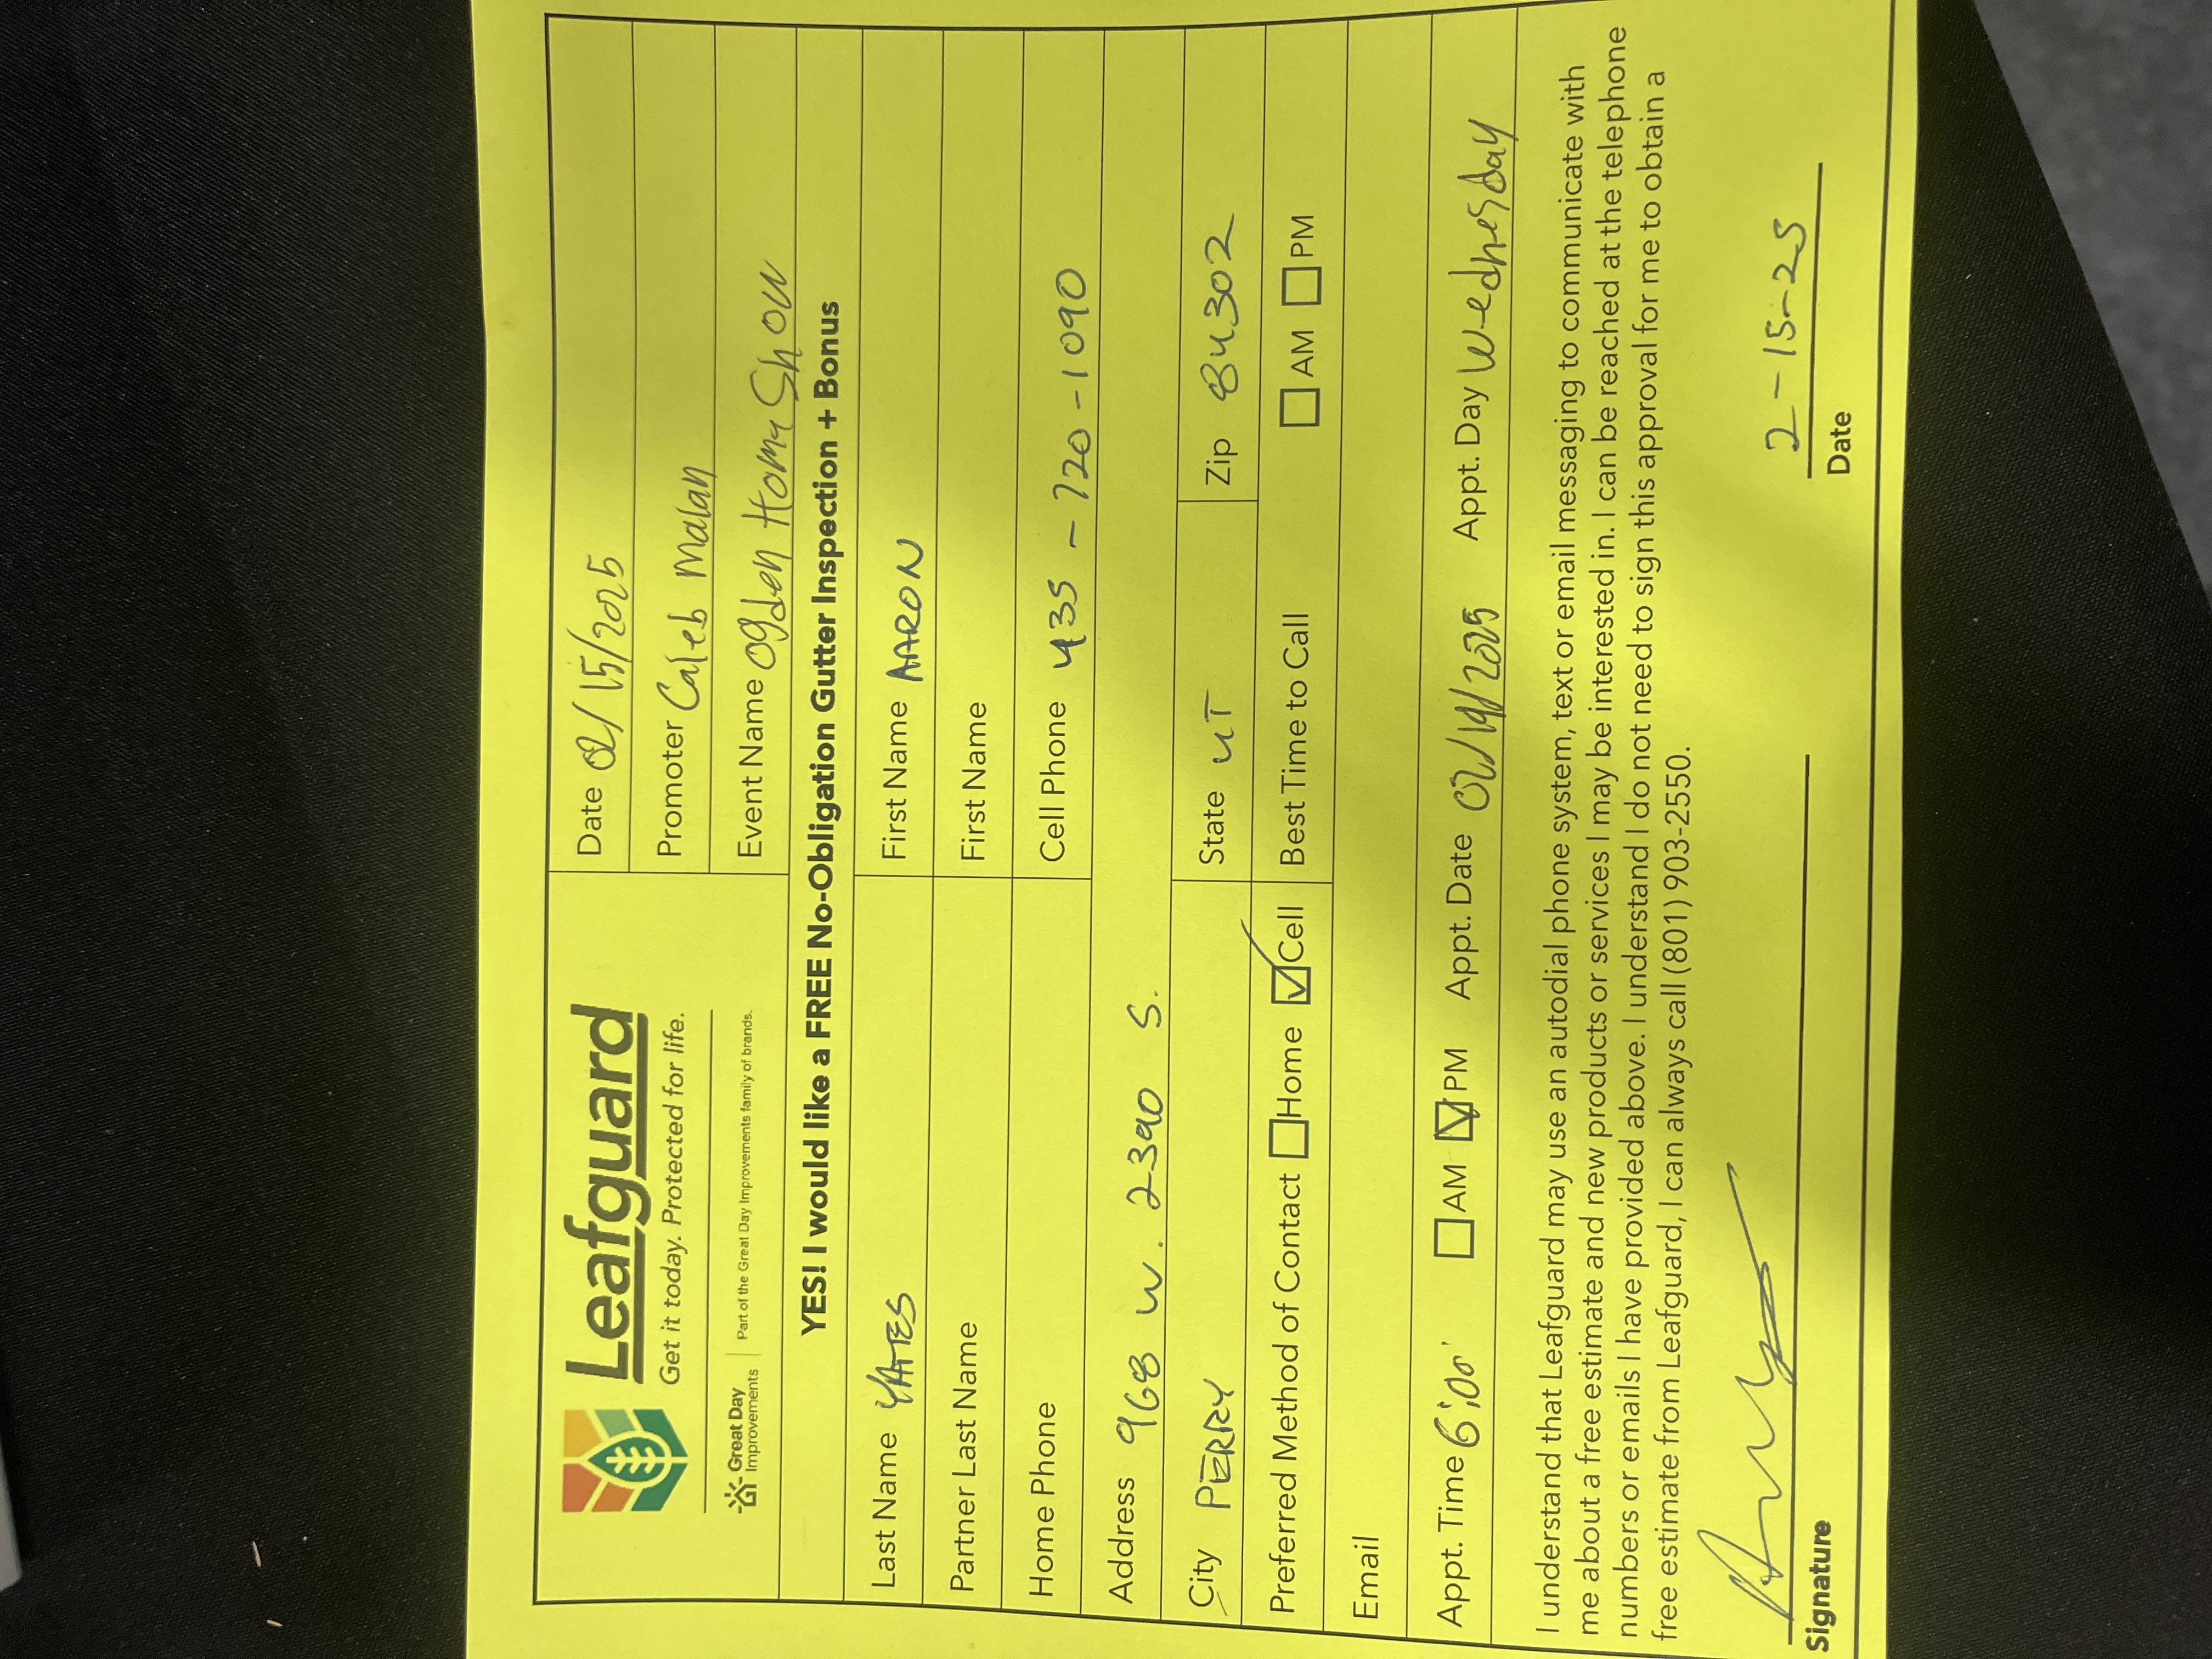 Leafguard
Get it today. Protected for life.
Great Day Improvements
Part of the Great Day Improvements family of brands.
Date 02/15/2025
Promoter Caleb Malan
Event Name Ogden Home Show
YES! I would like a FREE No-Obligation Gutter Inspection + Bonus
Last Name YATES First Name AARON
Partner Last Name First Name
Home Phone Cell Phone 435-720-1090
Address 968 W. 2390 S.
City PERRY State UT Zip 84302
Preferred Method of Contact Home Cell Best Time to Call AM PM
Email
Appt. Time 6:00 AM PM Appt. Date 02/19/2025 Appt. Day Wednesday
I understand that Leafguard may use an autodial phone system, text or email messaging to communicate with
me about a free estimate and new products or services I may be interested in. I can be reached at the telephone
numbers or emails I have provided above. I understand I do not need to sign this approval for me to obtain a
free estimate from Leafguard, I can always call (801) 903-2550.
2-15-25
Signature Date